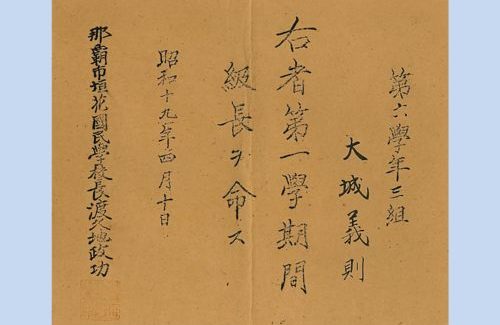 第六學年三組
大城義則
右者第一學期間
級長ヲ命ス
昭和十九年四月十日
那覇市垣花國民學校長渡久地政功